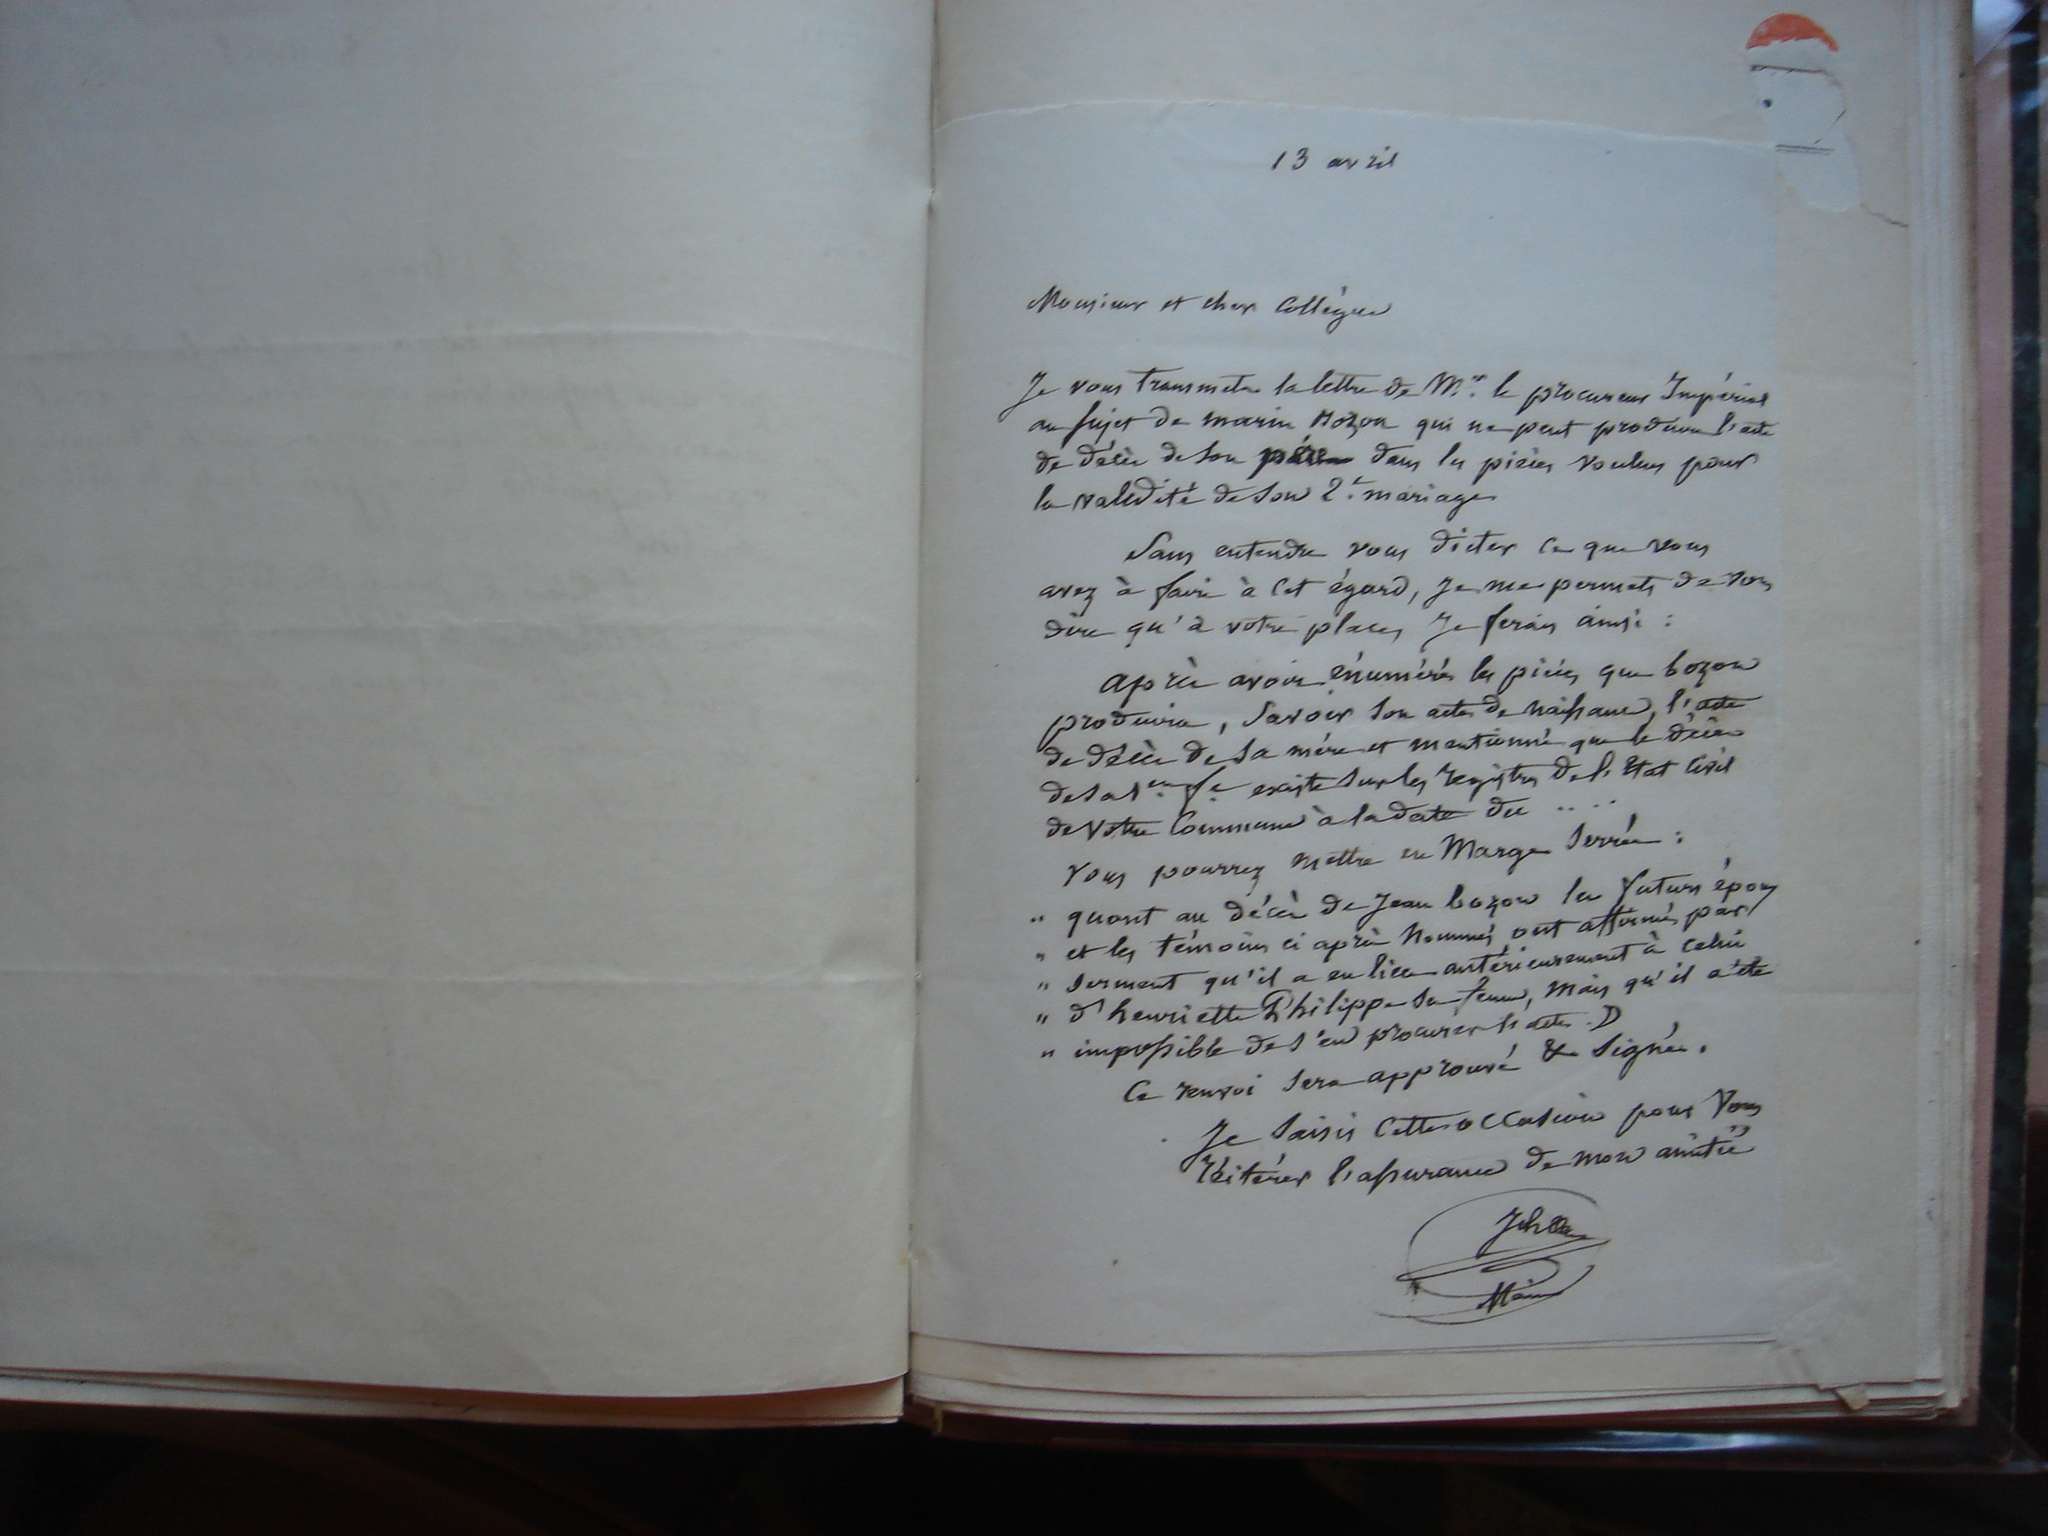 13 avril
Monsieur et cher Collègue
Je vous transmets la lettre de Mr. le procureur Impérial
au sujet de marin Bozon qui ne peut produire l'acte
de décès de son père dans les pièces voulues pour
la validité de son 2e. mariage
Sans entendre vous dicter ce que vous
avez à faire à cet égard, je me permets de vous
dire qu'à votre place, je ferais ainsi :
après avoir énuméré les pièces que bozon
produira, Savoir son acte de naissance, l'acte
de décès de sa mère et mentionné que le décès
de sa 1ere fe existe sur les registres de l'Etat Civil
de votre Commune à la date du ....
Vous pourrez mettre en Marge Serrée :
" quant au décès de Jean bozon les futurs époux
" et les témoins ci après nommés ont affirmés par
" serment qu'il a eu lieu antérieurement à celui
" d'henriette Philippe sa femme, mais qu'il a été
" impossible de s'en procurer l'acte.
Ce renvoi sera approuvé & Signé.
Je saisis cette occasion pour Vous
Réitérer l'assurance de mon amitié
Maire